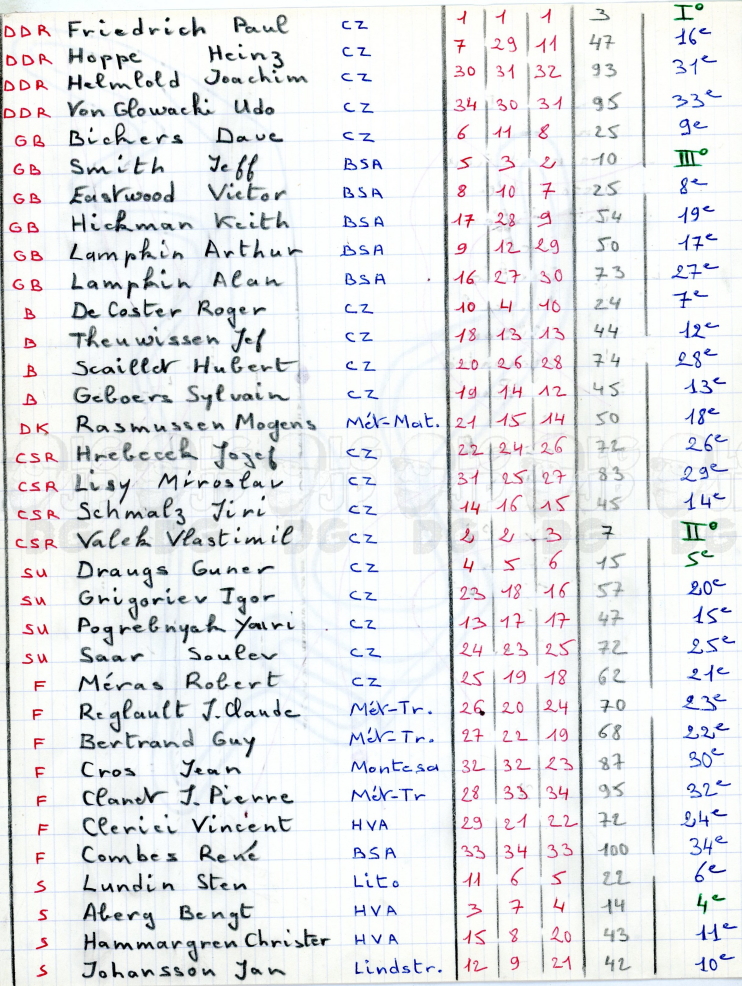 DDR Friedrich Paul CZ 1 1 1 3 I°
DDR Hoppe Heinz CZ 7 29 11 47 16e
DDR Helmlold Joachim CZ 30 31 32 93 31e
DDR Von Glowacki Udo CZ 34 30 31 95 33e
GB Bickers Dave CZ 6 11 8 25 9e
GB Smith Jeff BSA 5 3 2 10 III°
GB Eastwood Victor BSA 8 10 7 25 8e
GB Hickman Keith BSA 17 28 9 54 19e
GB Lampkin Arthur BSA 9 12 29 50 17e
GB Lampkin Alan BSA 16 27 30 73 27e
B De Coster Roger CZ 10 4 10 24 7e
B Theuwissen Jef CZ 18 13 13 44 12e
B Scaillet Hubert CZ 20 26 28 74 28e
B Geboers Sylvain CZ 19 14 12 45 13e
DK Rasmussen Mogens Mét-Mat. 21 15 14 50 18e
CSR Hrebecek Jozef CZ 22 24 26 72 26e
CSR Lisy Miroslav CZ 31 25 27 83 29e
CSR Schmalz Jiri CZ 14 16 15 45 14e
CSR Valek Vlastimil CZ 2 2 3 7 II°
SU Draugs Guner CZ 4 5 6 15 5e
SU Grigoriev Igor CZ 23 18 16 57 20e
SU Pogrebnyak Yairi CZ 13 17 17 47 15e
SU Saar Soulev CZ 24 23 25 72 25e
F Méras Robert CZ 25 19 18 62 21e
F Reglault J.Claude Mét-Tr. 26 20 24 70 23e
F Bertrand Guy Mét-Tr. 27 22 19 68 22e
F Cros Jean Montesa 32 32 23 87 30e
F Clanet J.Pierre Mét-Tr 28 33 34 95 32e
F Clerici Vincent HVA 29 21 22 72 24e
F Combes René BSA 33 34 33 100 34e
S Lundin Sten Lito 11 6 5 22 6e
S Aberg Bengt HVA 3 7 4 14 4e
S Hammargren Christer HVA 15 8 20 43 11e
S Johansson Jan Lindstr. 12 9 21 42 10e